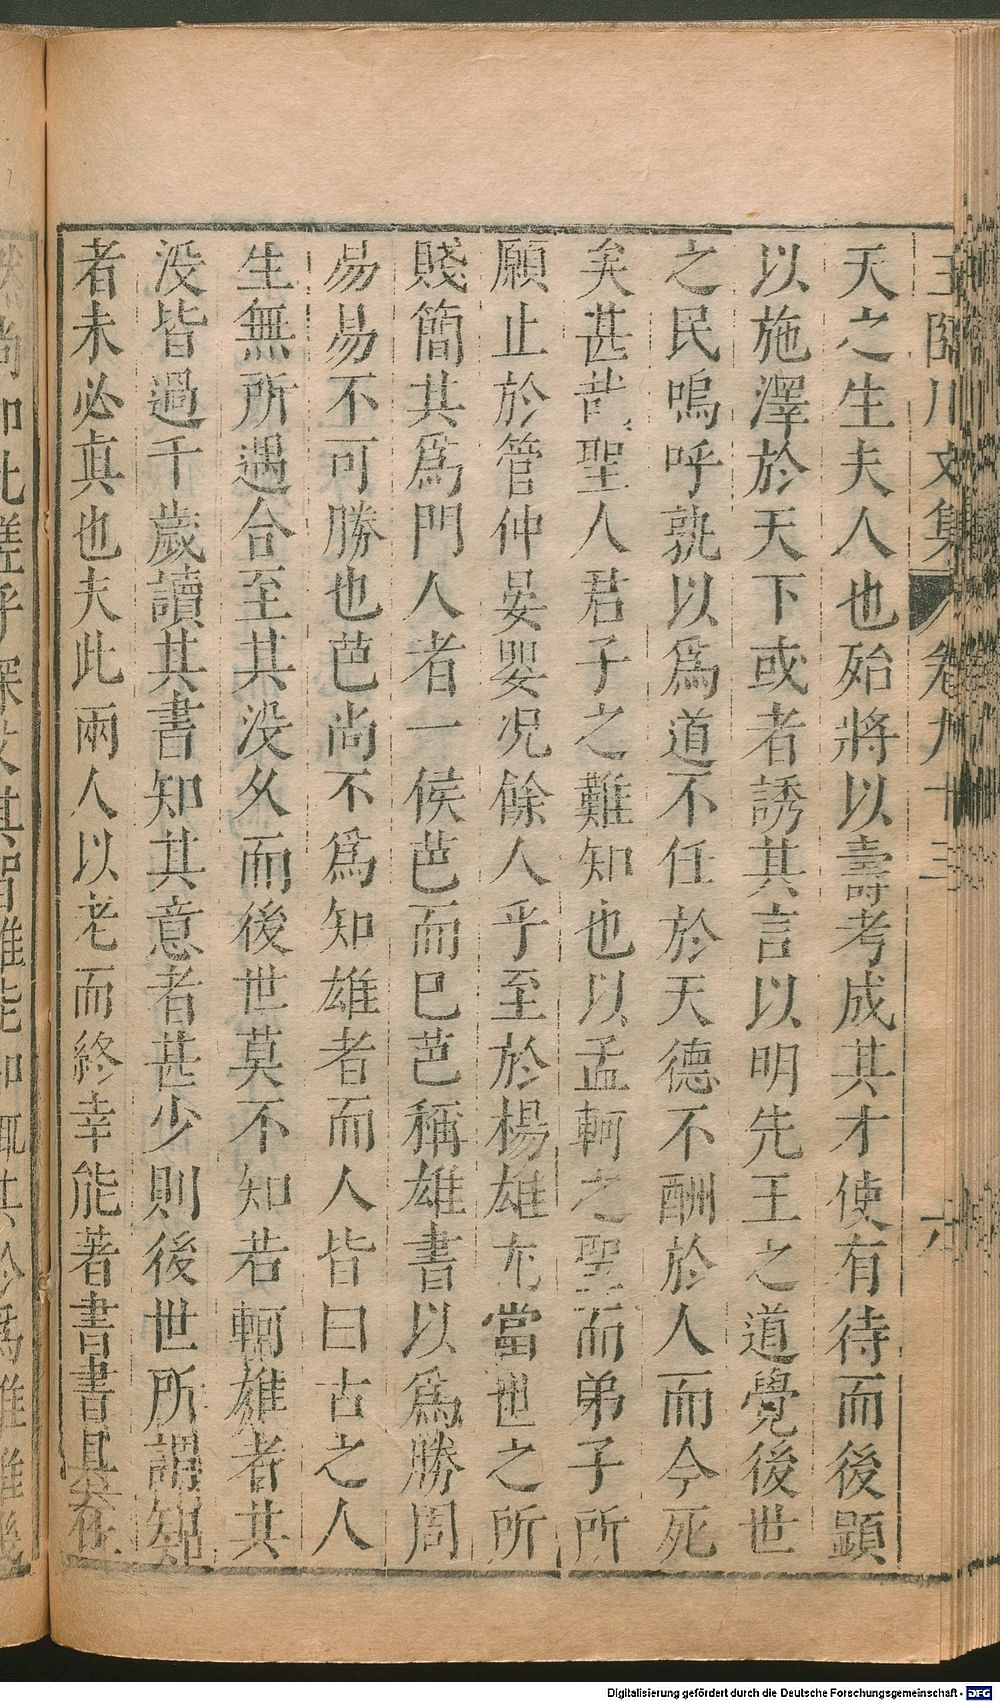 王臨川文集 卷九十三 六
天之生夫人也殆將以壽考成其才使有待而後顯
以施澤於天下或者誘其言以明先王之道覺後世
之民嗚呼孰以爲道不任於天德不酬於人而今死
矣甚哉聖人君子之難知也以孟軻之聖而弟子所
願止於管仲晏嬰况餘人乎至於楊雄尤當世之所
賤簡其爲門人者一侯芭而巳芭稱雄書以爲勝周
易易不可勝也芭尚不爲知雄者而人皆曰古之人
生無所遇合至其没久而後世莫不知若軻雄者其
没皆過千歲讀其書知其意者甚少則後世所謂知
者未必眞也夫此兩人以老而終幸能著書書具在
Digitalisierung gefördert durch die Deutsche Forschungsgemeinschaft - DFG